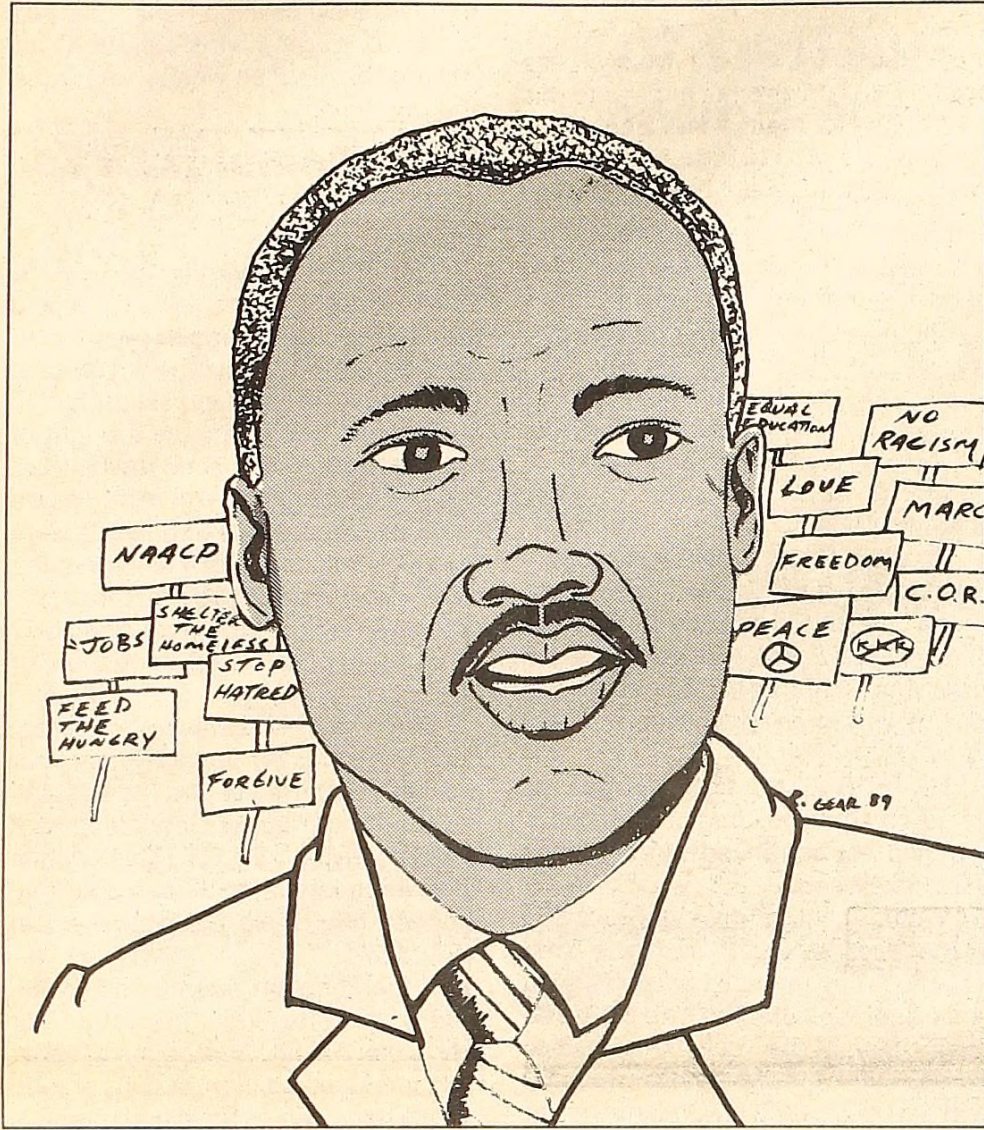 NAACP
JOBS
SHELTER
THE
HOMELESS
STOP
HATRED
FEED
THE
HUNGRY
FORGIVE
EQUAL
EDUCATION
NO
RACISM
LOVE
MARC
FREEDOM
C.O.R.
PEACE
KKK
GEAR 89